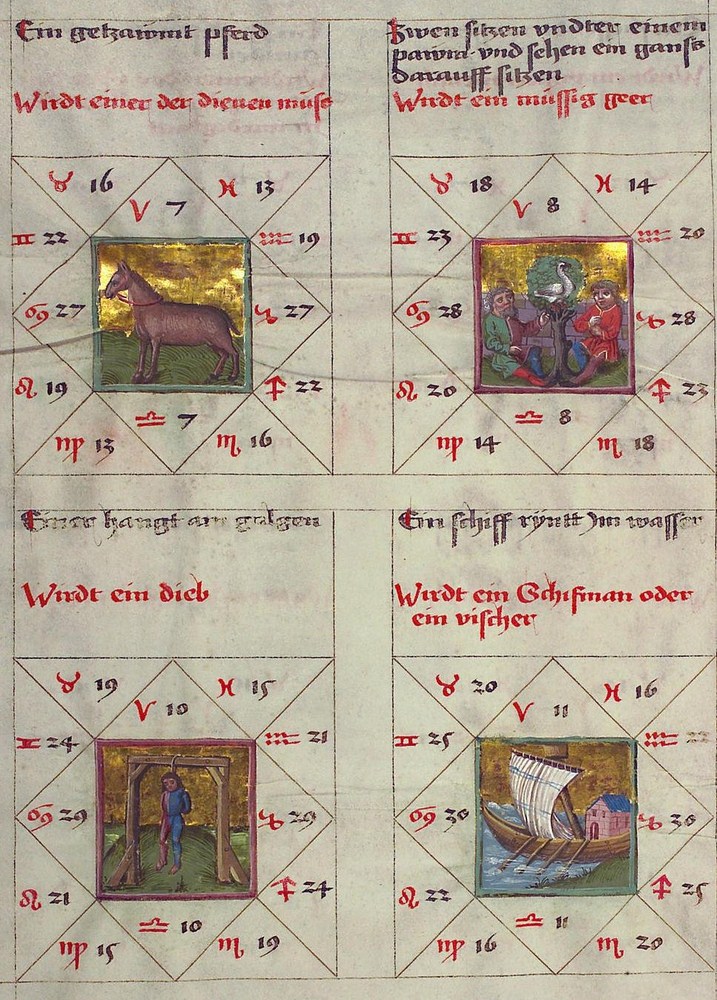 Ein getzawmt pferd
Wirdt einer der dienen muß
♉ 16
♈ 7
♓ 13
♊ 22
♒ 19
♋ 27
♑ 27
♌ 19
♐ 22
♍ 13
♎ 7
♏ 16
Zwen sitzen vndter einem
pawm vnd sehen ein ganß
darauff sitzen
Wirdt ein müssig geer
♉ 18
♈ 8
♓ 14
♊ 23
♒ 20
♋ 28
♑ 28
♌ 20
♐ 23
♍ 14
♎ 8
♏ 18
Einer hangt am galgen
Wirdt ein dieb
♉ 19
♈ 10
♓ 15
♊ 24
♒ 21
♋ 29
♑ 29
♌ 21
♐ 24
♍ 15
♎ 10
♏ 19
Ein schiff rÿntt Im wasser
Wirdt ein Schifman oder
ein vischer
♉ 20
♈ 11
♓ 16
♊ 25
♒ 22
♋ 30
♑ 30
♌ 22
♐ 25
♍ 16
♎ 11
♏ 20